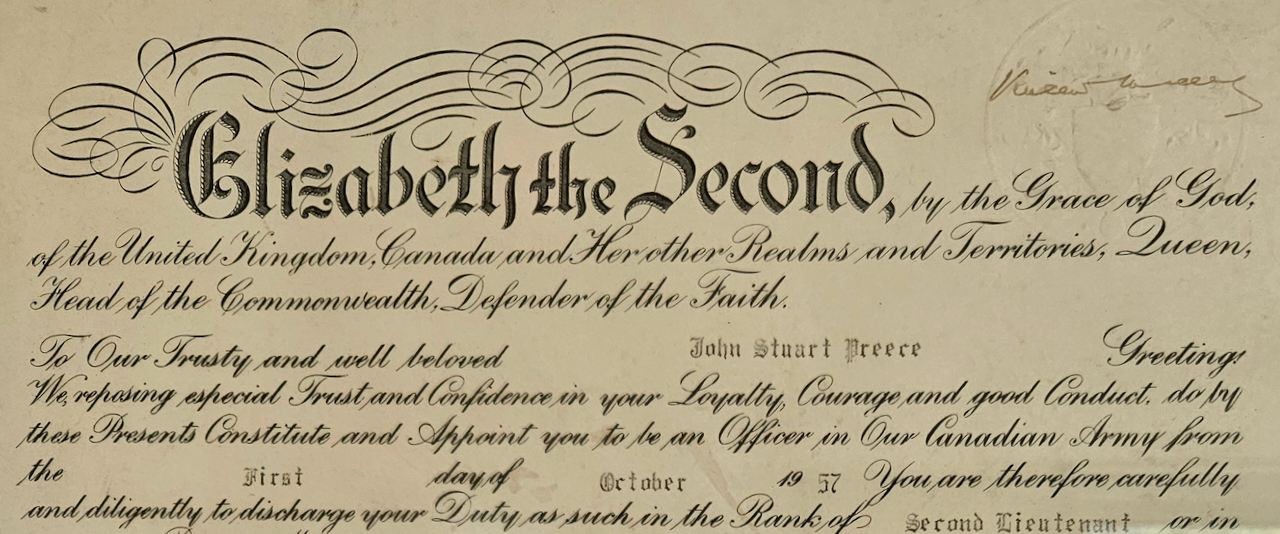 Elizabeth the Second, by the Grace of God,
of the United Kingdom, Canada and Her other Realms and Territories, Queen,
Head of the Commonwealth, Defender of the Faith.
To Our Trusty and well beloved John Stuart Preece Greeting:
We, reposing especial Trust and Confidence in your Loyalty, Courage and good Conduct. do by
these Presents Constitute and Appoint you to be an Officer in Our Canadian Army from
the First day of October 19 57 You are therefore carefully
and diligently to discharge your Duty as such in the Rank of Second Lieutenant or in